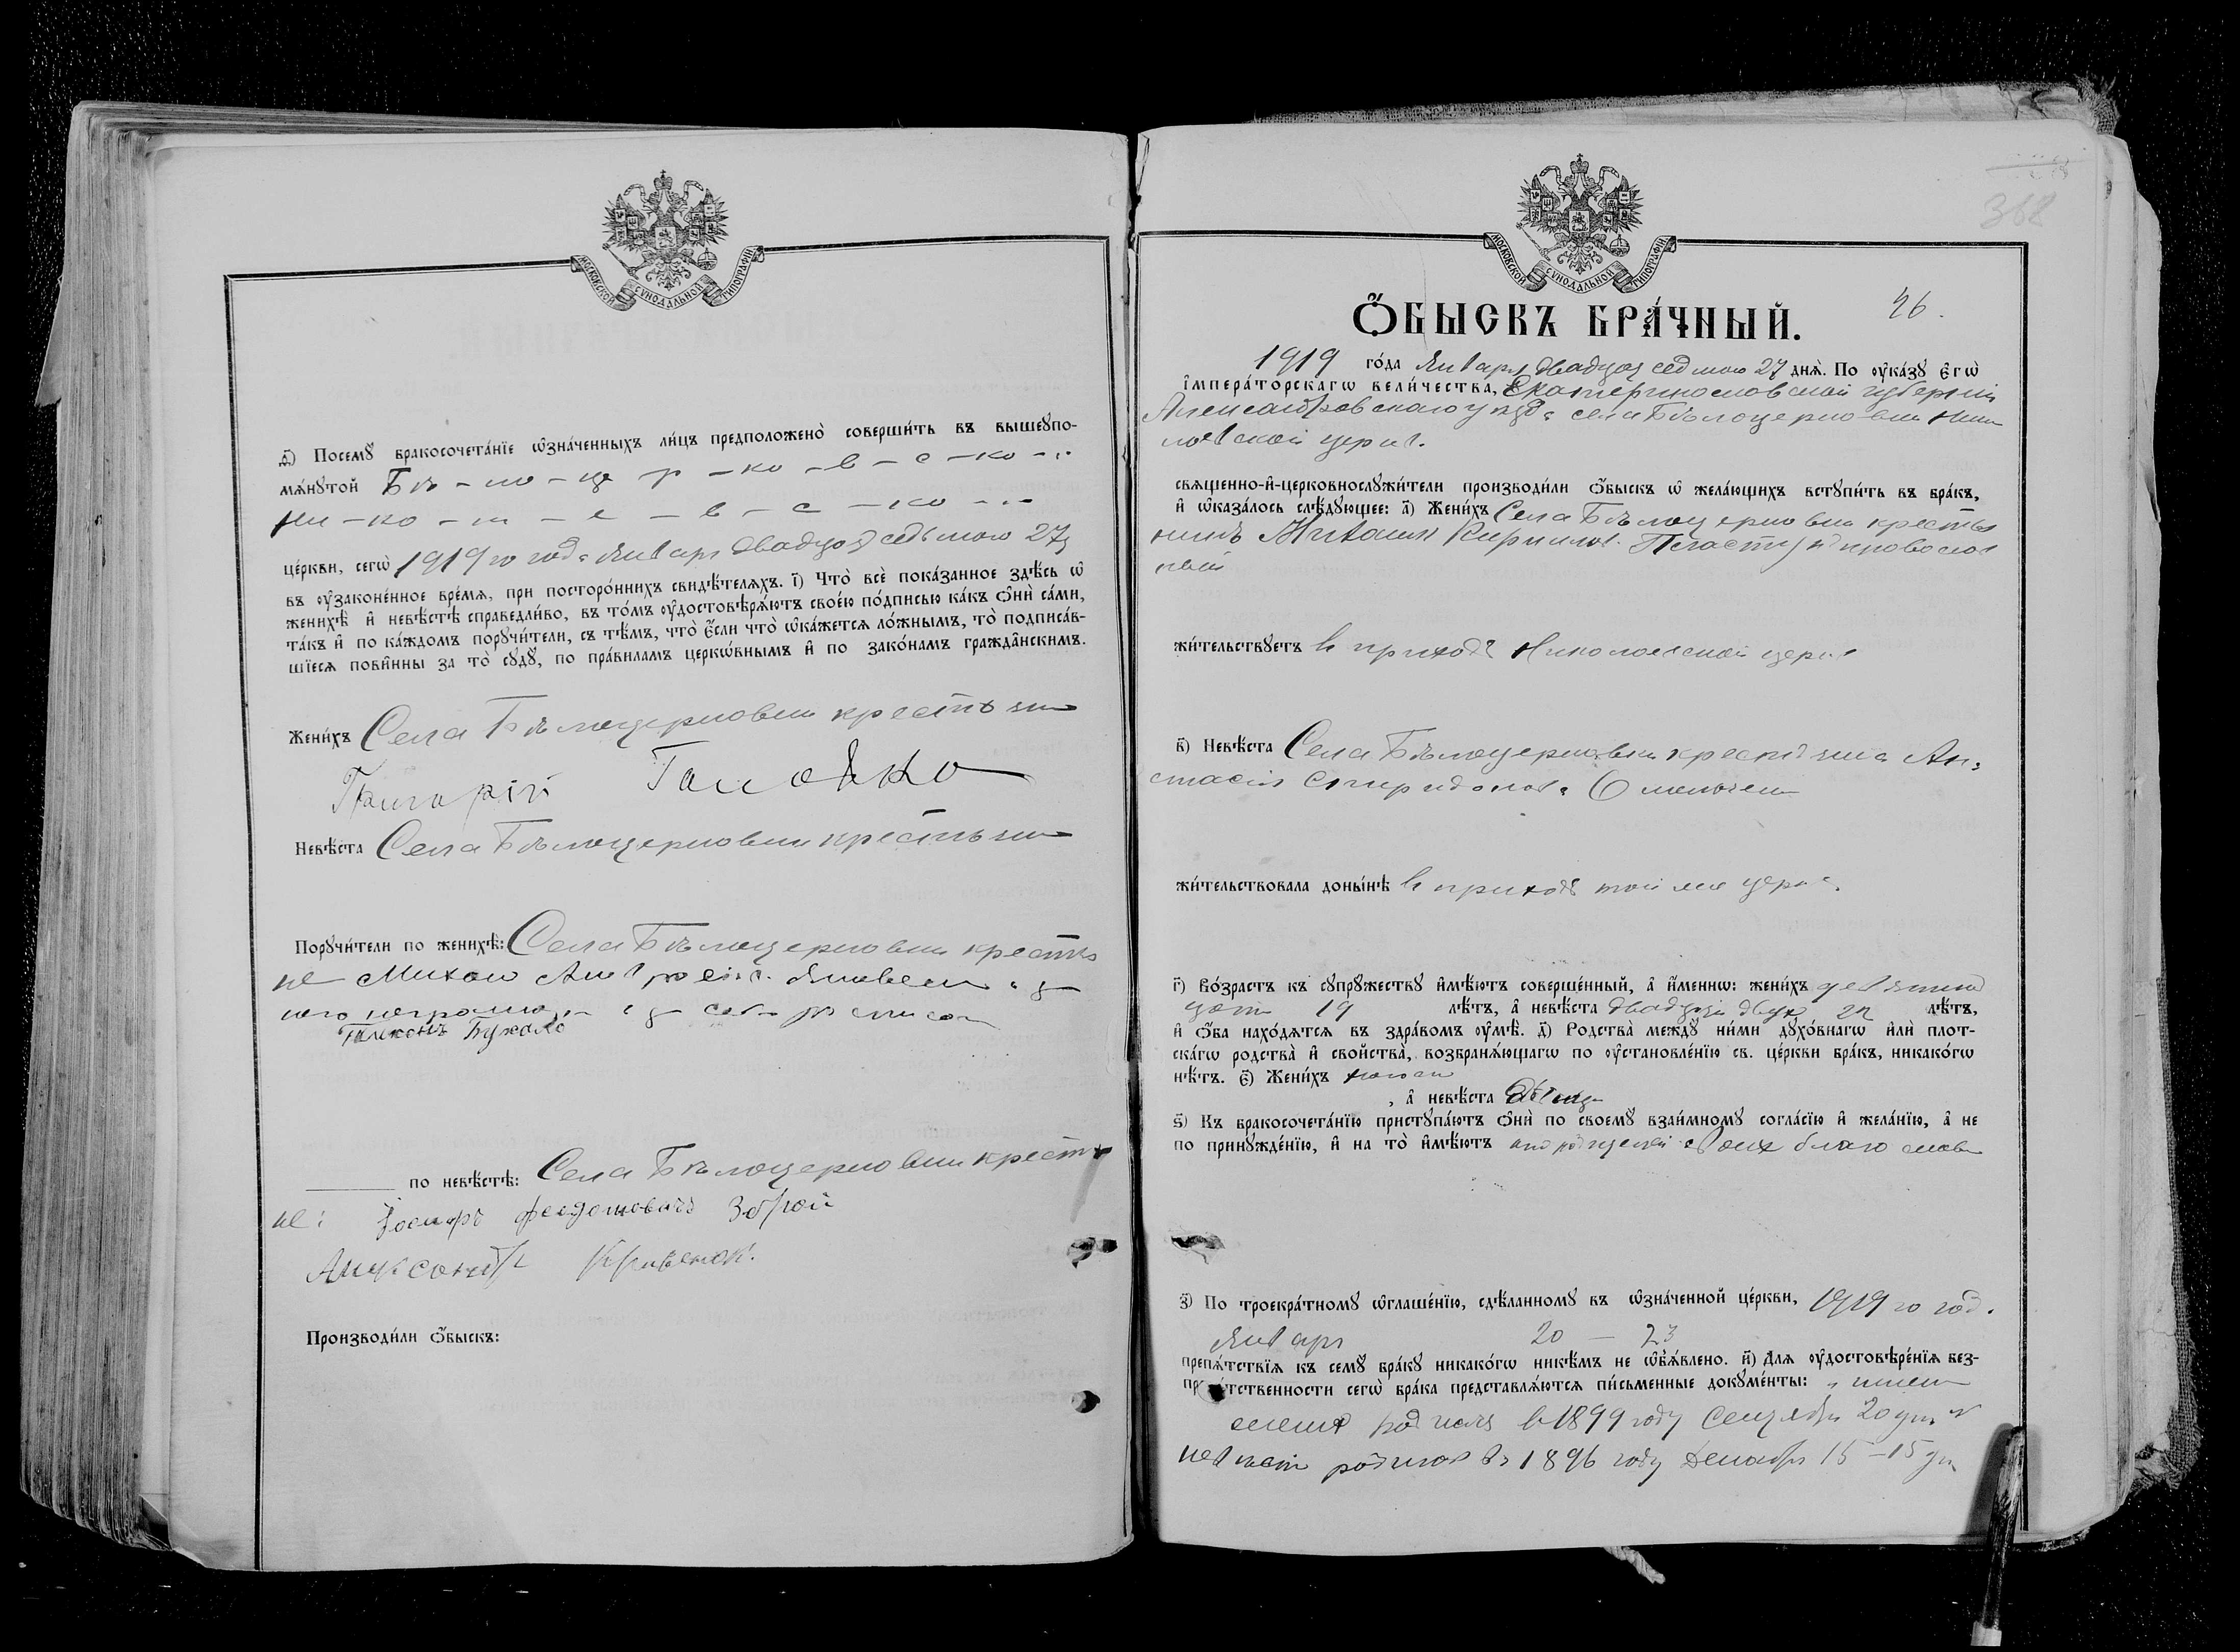 МОСКОВСКОЙ СѴНОДАЛЬНОЙ ТИПОГРАФІИ
Посемꙋ̀ бракосочета́нїе ѡ҆зна́ченныхъ ли́цъ предположено̀ соверши́ть въ вышеꙋпо-
мѧ́нꙋтой Бѣ - ло - це р - ко - в - с - ко - ..
Ни - ко - л - е - в - с - ко - ..
це́ркви, сегѡ̀ 1919 го года Января двадцать седьмого 27
въ ᲂу҆зако́ненное вре́мѧ, при посторо́ннихъ свидѣ́телѧхъ. і҃) Что̀ всѐ пока́занное здѣ́сь ѡ҆
женихѣ̀ и҆ невѣ́стѣ справедли́во, въ то́мъ ᲂу҆достовѣрѧ́ютъ свое́ю по́дписью ка́къ ѻ҆нѝ са́ми,
та́къ и҆ по ка́ждомъ порꙋчи́тели, съ тѣ́мъ, что̀ є҆́сли что̀ ѡ҆ка́жетсѧ ло́жнымъ, то̀ подписа́в-
шїесѧ пови́нны за то̀ сꙋдꙋ̀, по пра́виламъ церкѡ́внымъ и҆ по зако́намъ гражда̑нскимъ.
Жени́хъ Села Бѣлоцерковки крестьян
Григорій
Невѣ́ста Села Бѣлоцерковки крестьян
Порꙋчи́тели по женихѣ̀: Села Бѣлоцерковки крестья
не Михаи
неграмо за себя росписал
Тихонъ Бужало
по невѣ́стѣ: Села Бѣлоцерковки крестья
не: Іосифъ Федотовичъ Зброй
Александр Кривенок.
Производи́ли ѻ҆́быскъ:
МОСКОВСКОЙ СѴНОДАЛЬНОЙ ТИПОГРАФІИ
368
46.
Ѻ҆́БЫСКЪ БРА́ЧНЫЙ.
1919 го́да Января двадцать седьмого 27 днѧ̀. По ᲂу҆ка́зꙋ є҆гѡ̀
і҆мпера́торскагѡ вели́чества, Екатеринославской губерніи
Александровскаго уезда села Бѣлоцерковки Ник
лаевской церкв.
свѧще́нно-и҆-церковнослꙋжи́тели производи́ли ѻ҆́быскъ ѡ҆ жела́ющихъ встꙋпи́ть въ бра́къ,
и҆ ѡ҆каза́лось слѣ́дꙋющее: а҃) Жени́хъ Села Бѣлоцерковки крестья
нинъ Кирилов. Пластун православ
ный
жи́тельствꙋетъ в приходѣ Николаевской церкв
в҃) Невѣ́ста Села Бѣлоцерковки крестьянка Ан
стасія Спиридонова
жи́тельствовала доны́нѣ в приходѣ той же церкв.
г҃) Во́зрастъ къ сꙋпрꙋ́жествꙋ и҆мѣ́ютъ соверше́нный, а҆ и҆́меннѡ: жени́хъ девятнад
цати 19 лѣ́тъ, а҆ невѣ́ста двадцати двух 22 лѣ́тъ,
и҆ ѻ҆́ба нахо́дѧтсѧ въ здра́вомъ ᲂу҆мѣ̀. д҃) Родства̀ междꙋ̀ ни́ми дꙋхо́внагѡ и҆лѝ плот-
ска́гѡ родства̀ и҆ свойства̀, возбранѧ́ющагѡ по ᲂу҆становле́нїю св. це́ркви бра́къ, никако́гѡ
нѣ́тъ. є҃) Жени́хъ холост
, а҆ невѣ́ста девица
ѕ҃) Къ бракосочета́нїю пристꙋпа́ютъ ѻ҆нѝ по своемꙋ̀ взаи́мномꙋ согла́сїю и҆ жела́нїю, а҆ не
по принꙋжде́нїю, и҆ на то̀ и҆мѣ́ютъ от родителей своих благослове
з҃) По троекра́тномꙋ ѡ҆глаше́нїю, сдѣ́ланномꙋ въ ѡ҆зна́ченной це́ркви, 1919 го год.
Января 20 — 23
препѧ́тствїѧ къ семꙋ̀ бра́кꙋ никако́гѡ никѣ́мъ не ѡ҆б̾ѧ́влено. и҃) Длѧ ᲂу҆достовѣре́нїѧ без-
препѧ́тственности сегѡ̀ бра́ка представлѧ́ютсѧ пи́сьменные докꙋме́нты:
жених родился в 1899 году Сентября 20 дня
невѣста родилась въ 1896 году Декабря 15 - 15 дн